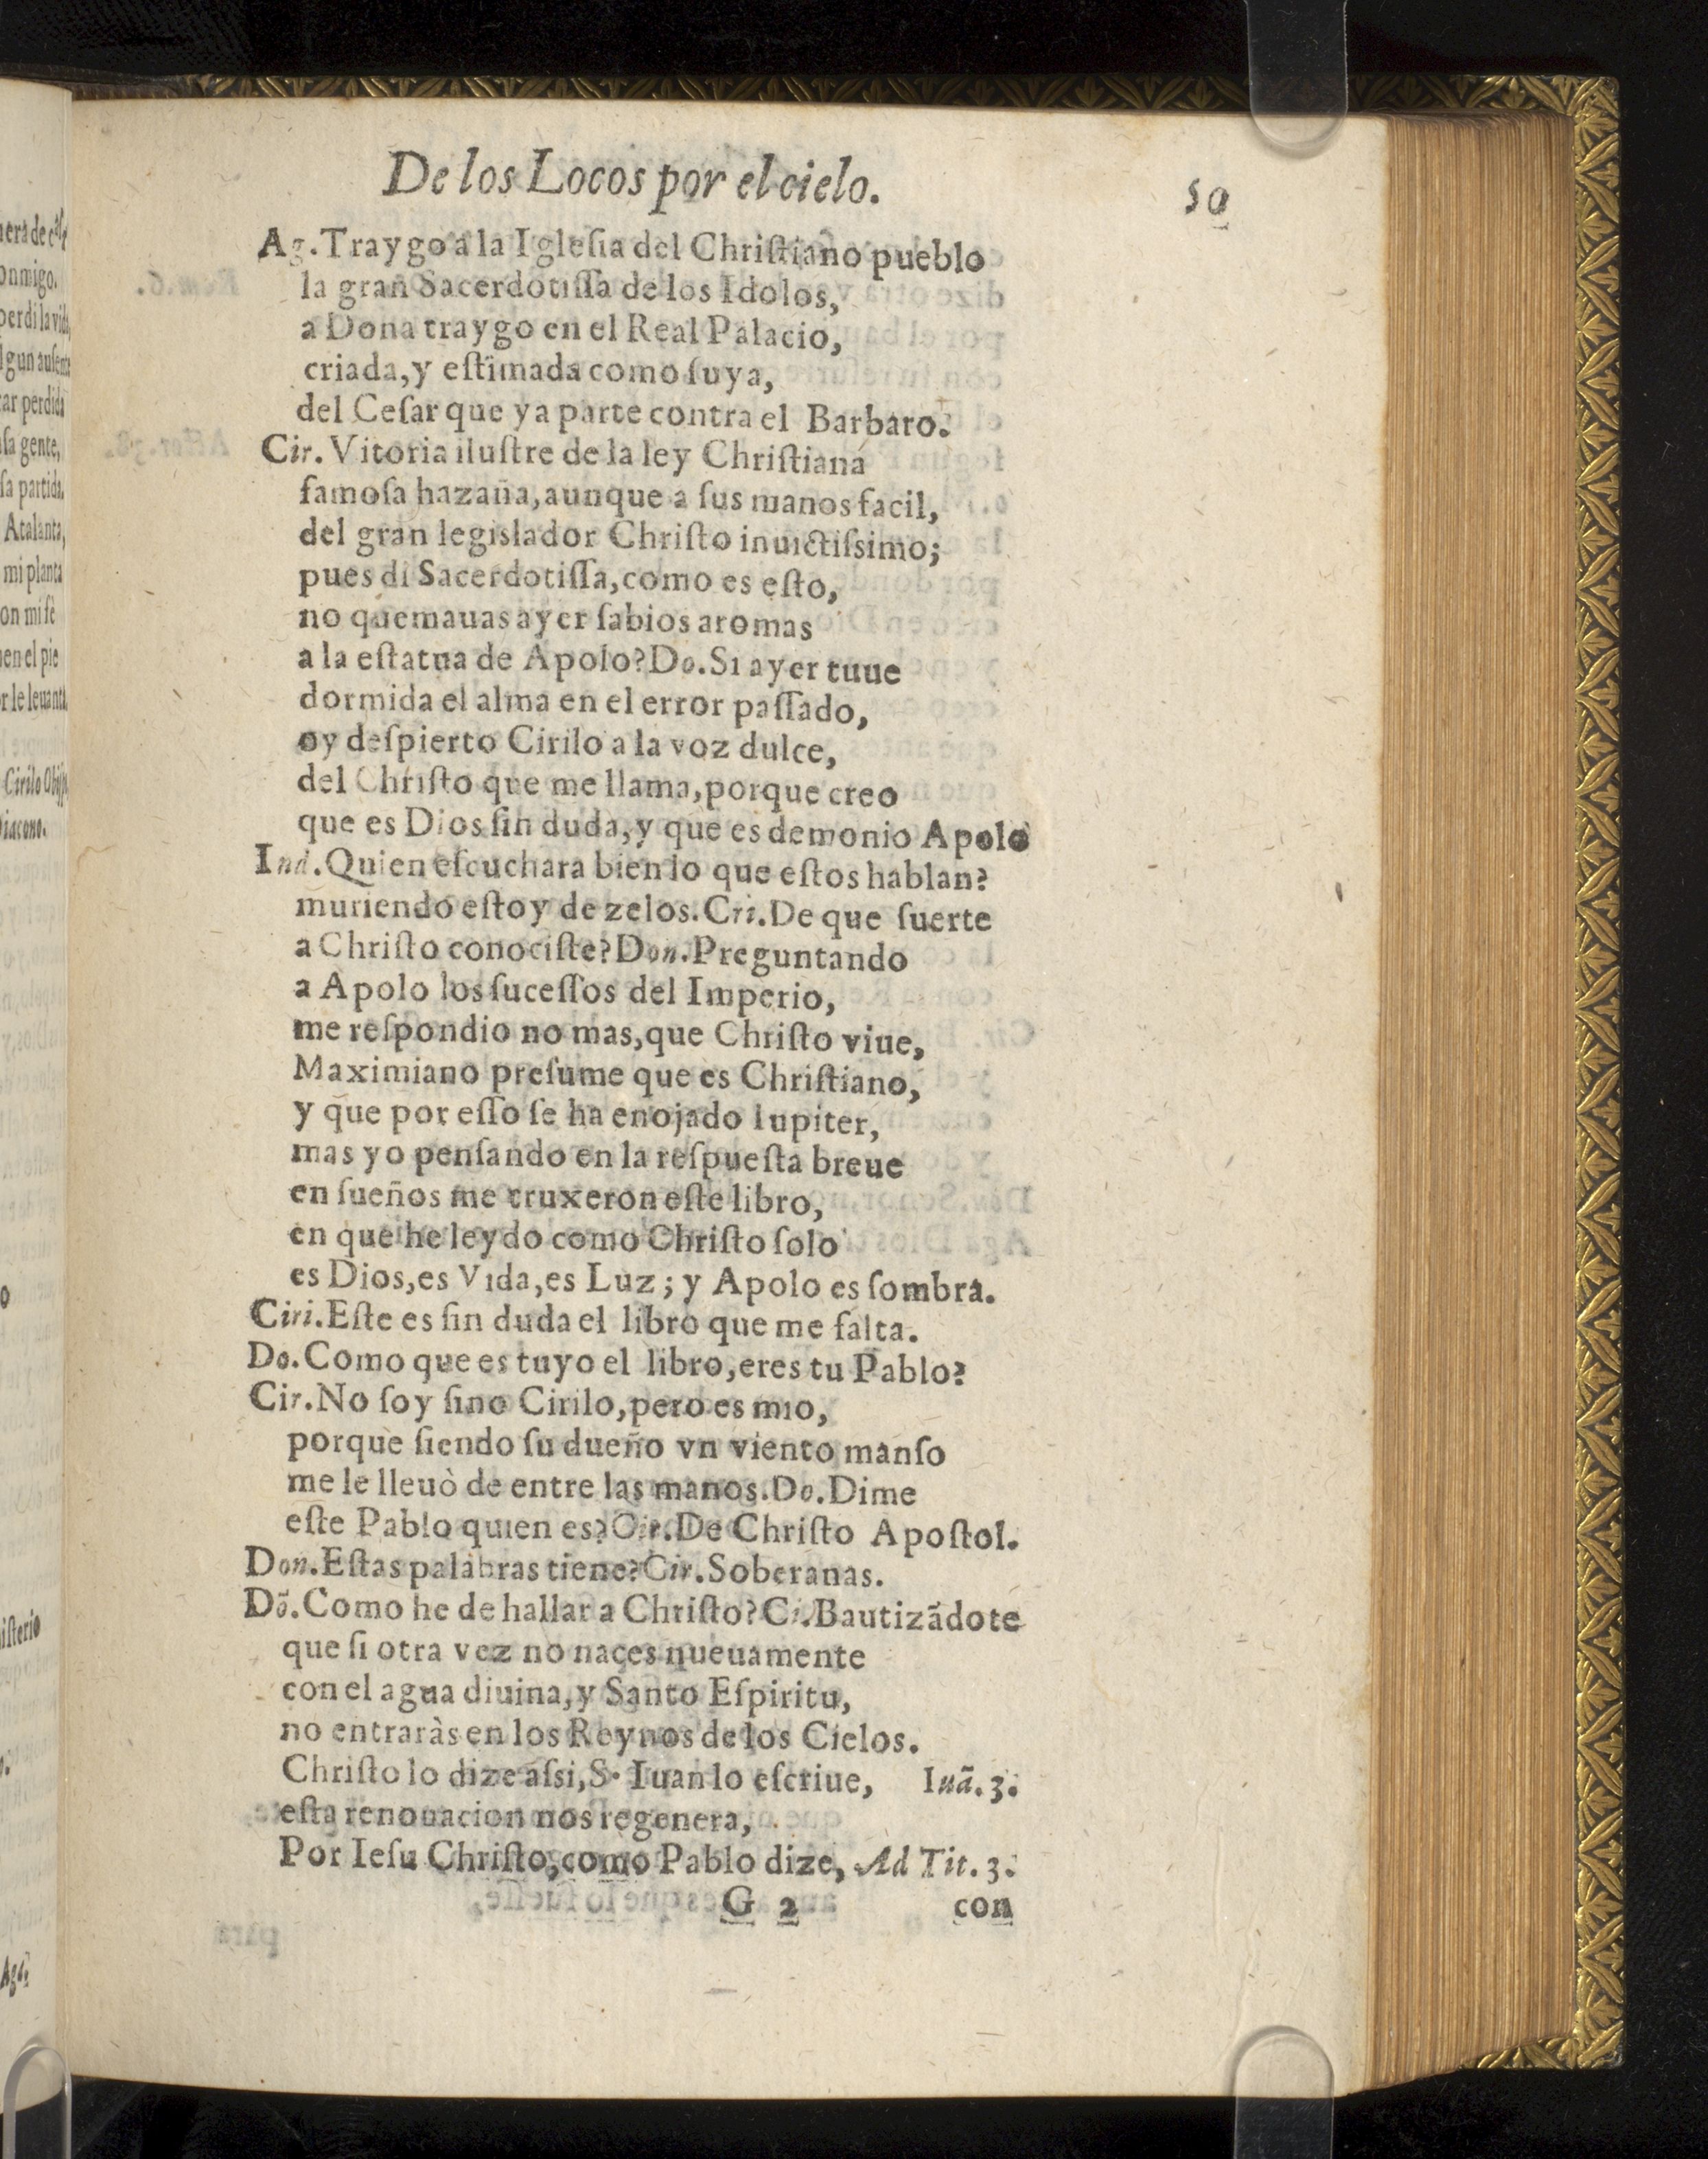 De los Locos por el cielo.
50
Ag.Traygo a la Igleſia del Chriſtiano pueblo
la gran Sacerdotiſſa de los Idolos,
a Dona traygo en el Real Palacio,
criada,y eſtimada como ſuya,
del Ceſar que ya parte contra el Barbaro.
Cir. Vitoria iluſtre de la ley Chriſtiana
famoſa hazaña,aunque a ſus manos facil,
del gran legislador Chriſto inuictiſsimo;
pues di Sacerdotiſſa,como es eſto,
no quemauas ayer ſabios aromas
a la eſtatua de Apolo?Do.Si ayer tuue
dormida el alma en el error paſſado,
oy deſpierto Cirilo a la voz dulce,
del Chriſto que me llama,porque creo
que es Dios ſin duda,y que es demonio Apolo
Ind.Quien eſcuchara bien lo que eſtos hablan?
muriendo eſtoy de zelos.Cri.De que ſuerte
a Chriſto conociſte?Don.Preguntando
a Apolo los ſuceſſos del Imperio,
me reſpondio no mas,que Chriſto viue,
Maximiano preſume que es Chriſtiano,
y que por eſſo ſe ha enojado Iupiter,
mas yo penſando en la reſpueſta breue
en ſueños me truxeron eſte libro,
en que he leydo como Chriſto ſolo
es Dios,es Vida,es Luz; y Apolo es ſombra.
Ciri.Eſte es ſin duda el libro que me falta.
Do.Como que es tuyo el libro,eres tu Pablo?
Cir.No ſoy ſino Cirilo,pero es mio,
porque ſiendo ſu dueño vn viento manſo
me le lleuò de entre las manos.Do.Dime
eſte Pablo quien es?Cir.De Chriſto Apoſtol.
Don.Eſtas palabras tiene?Cir.Soberanas.
Dõ.Como he de hallar a Chriſto?Ci.Bautizãdote
que ſi otra vez no naces nueuamente
con el agua diuina,y Santo Eſpiritu,
no entraràs en los Reynos de los Cielos.
Chriſto lo dize aſsi,S. Iuan lo eſcriue, Iuã.3.
eſta renouacion nos regenera,
Por Ieſu Chriſto,como Pablo dize, Ad Tit.3.
G 2 con